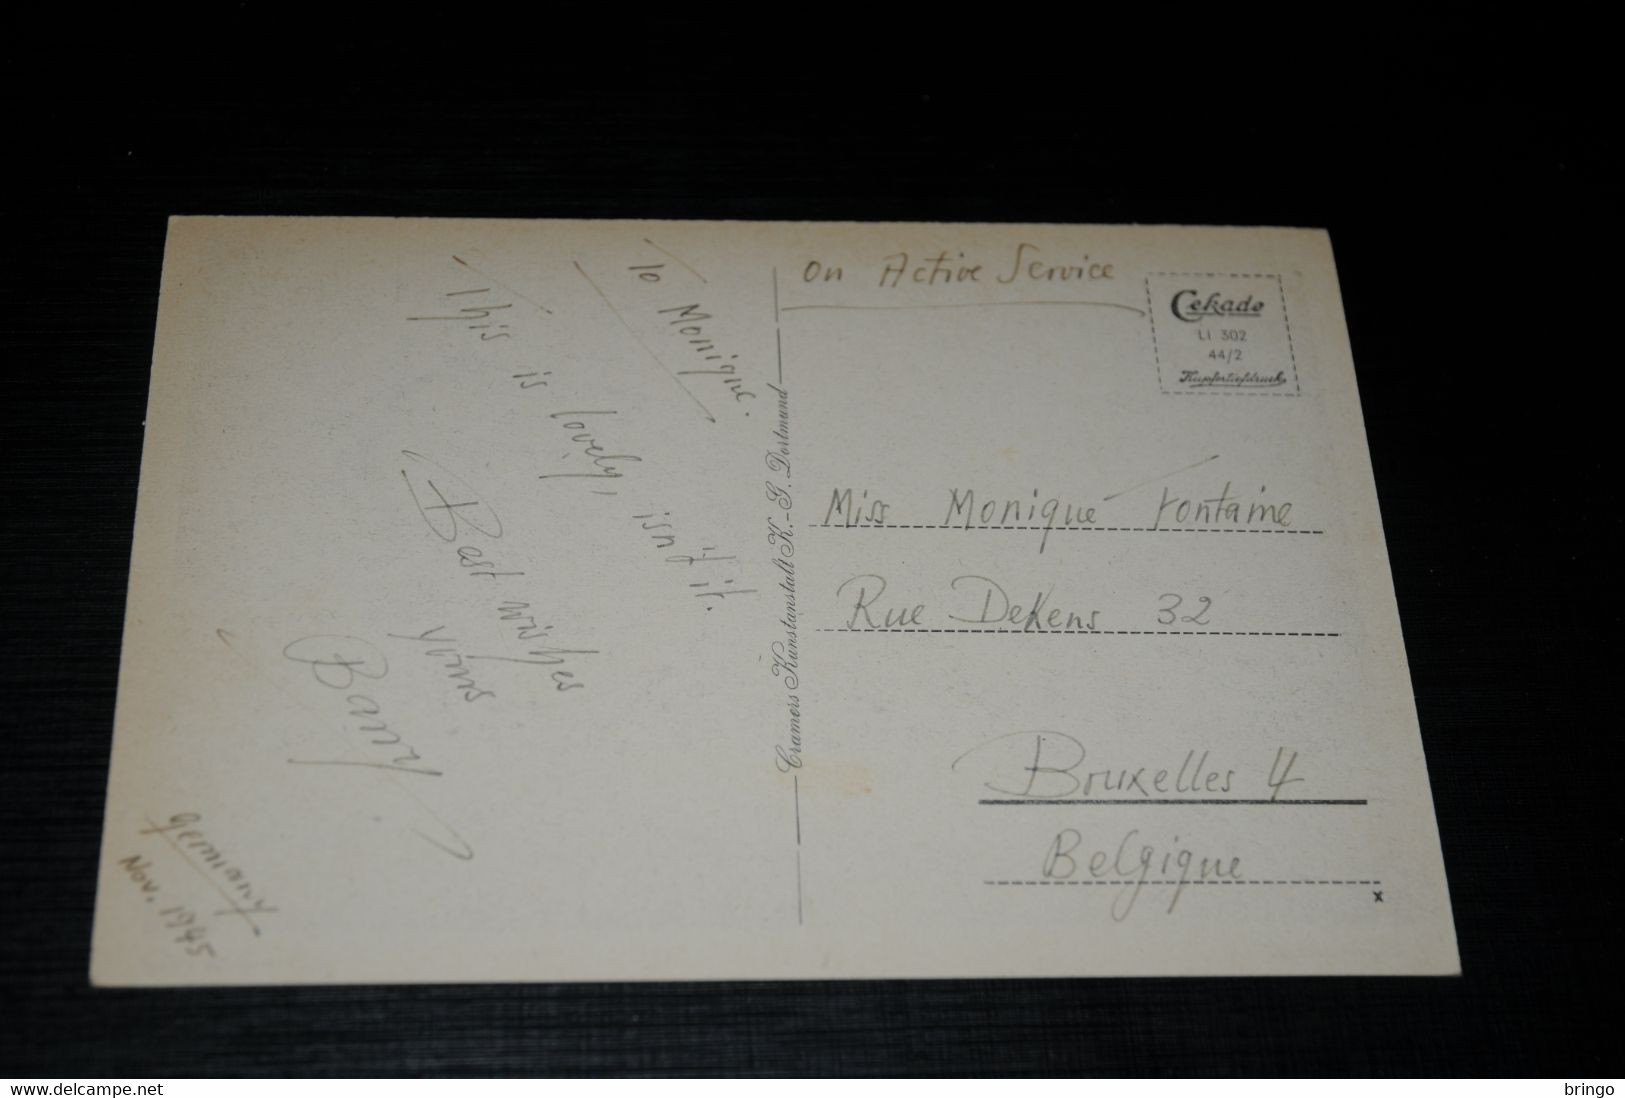 To Monique.
This is lovely, isn't it.
Best wishes
Yours
Barry
Germany
Nov. 1945
Cramers Kunstanstalt K.-G. Dortmund
On Active Service
Cekade
LI 302
44/2
Kupfertiefdruck
Miss Monique Fontaine
Rue DeKens 32
Bruxelles 4
Belgique
x
www.delcampe.net
bringo